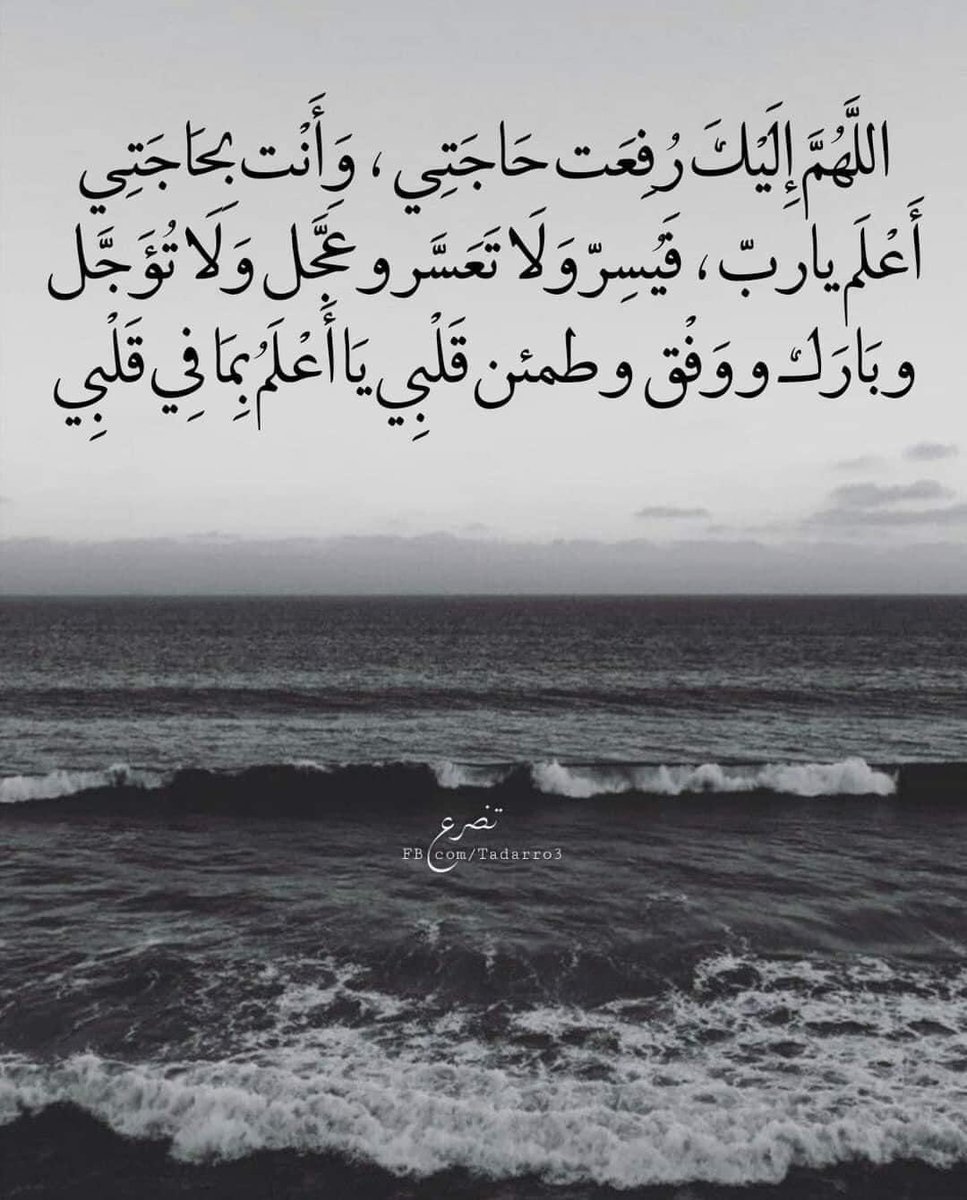 اللَّهُمَّ إِلَيْكَ رُفِعَت حَاجَتِي ، وَأَنْت بِحَاجَتِي
أَعْلَم يارب ، فَيُسِرّ وَلَا تَعَسَّر و عَجِّل وَلَا تُؤَجَّل
و بَارَك و وَفْق و طمئن قَلْبِي يَا أَعْلَمُ بِمَا فِي قَلْبِي
تضرع
FB.com/Tadarro3